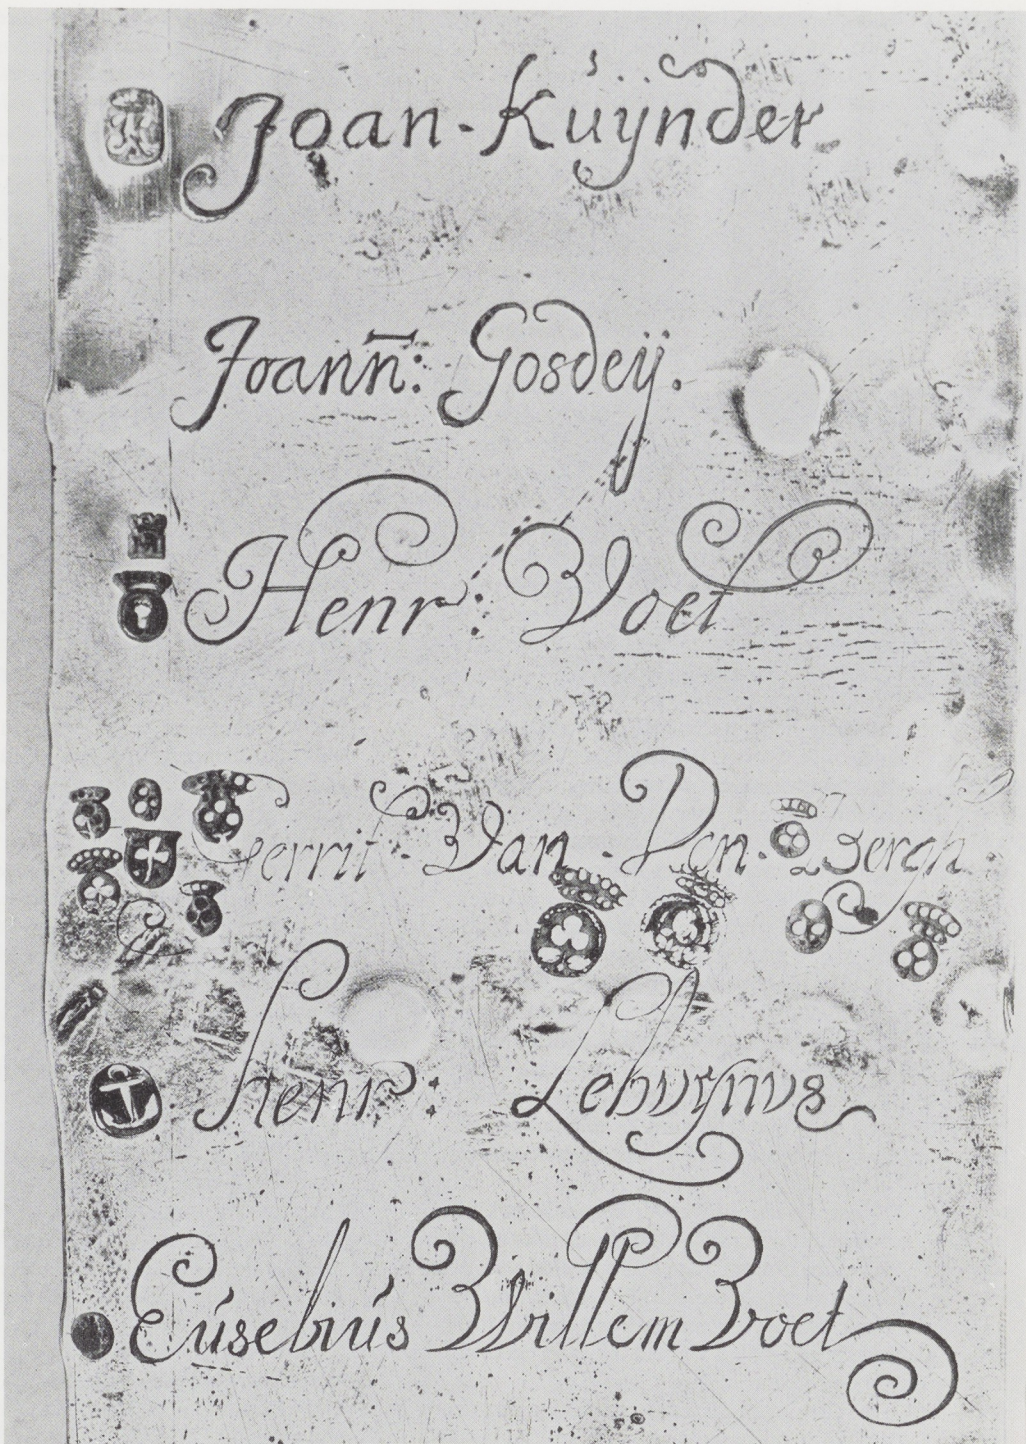 Joan-Kuÿnder
Joann̄: Gosdeÿ.
Henr: Voet
Gerrit-Van-Den-Bergh
Henr: Lebuynus
Eusebiús Willem Voet